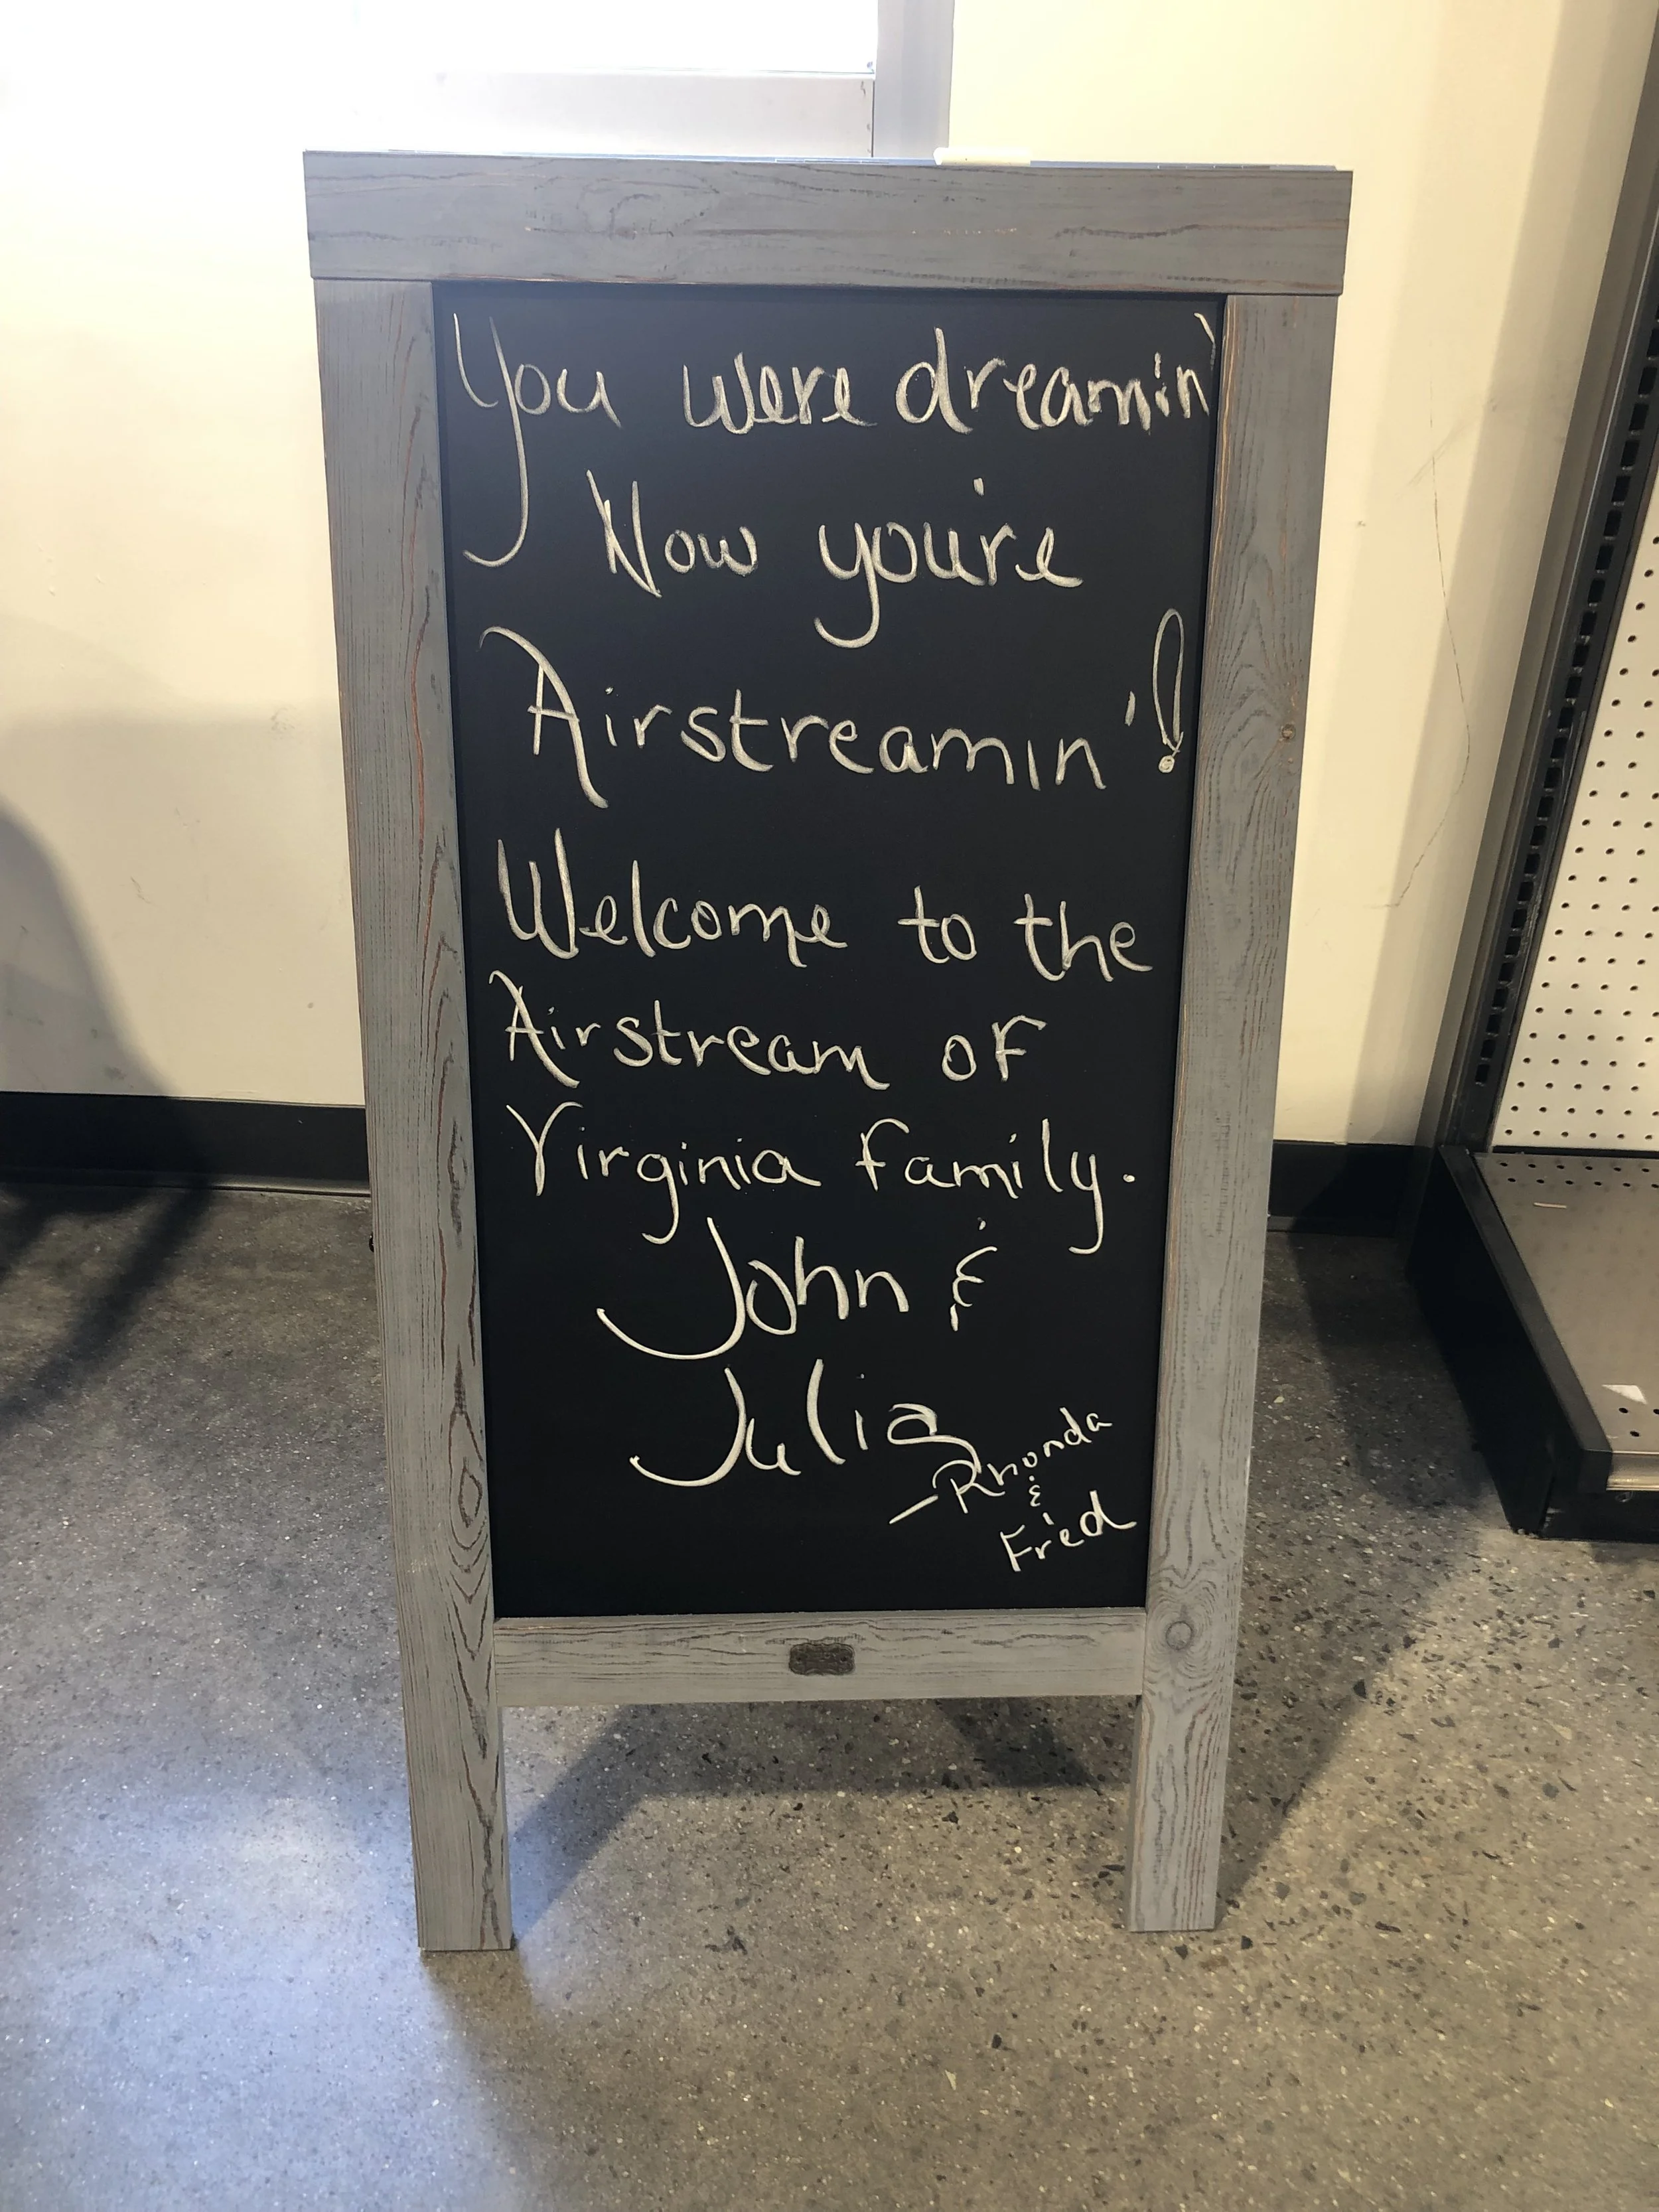 You were dreamin'
Now you're
Airstreamin'!
Welcome to the
Airstream of
Virginia family.
John &
Julia
-Rhonda
&
Fred